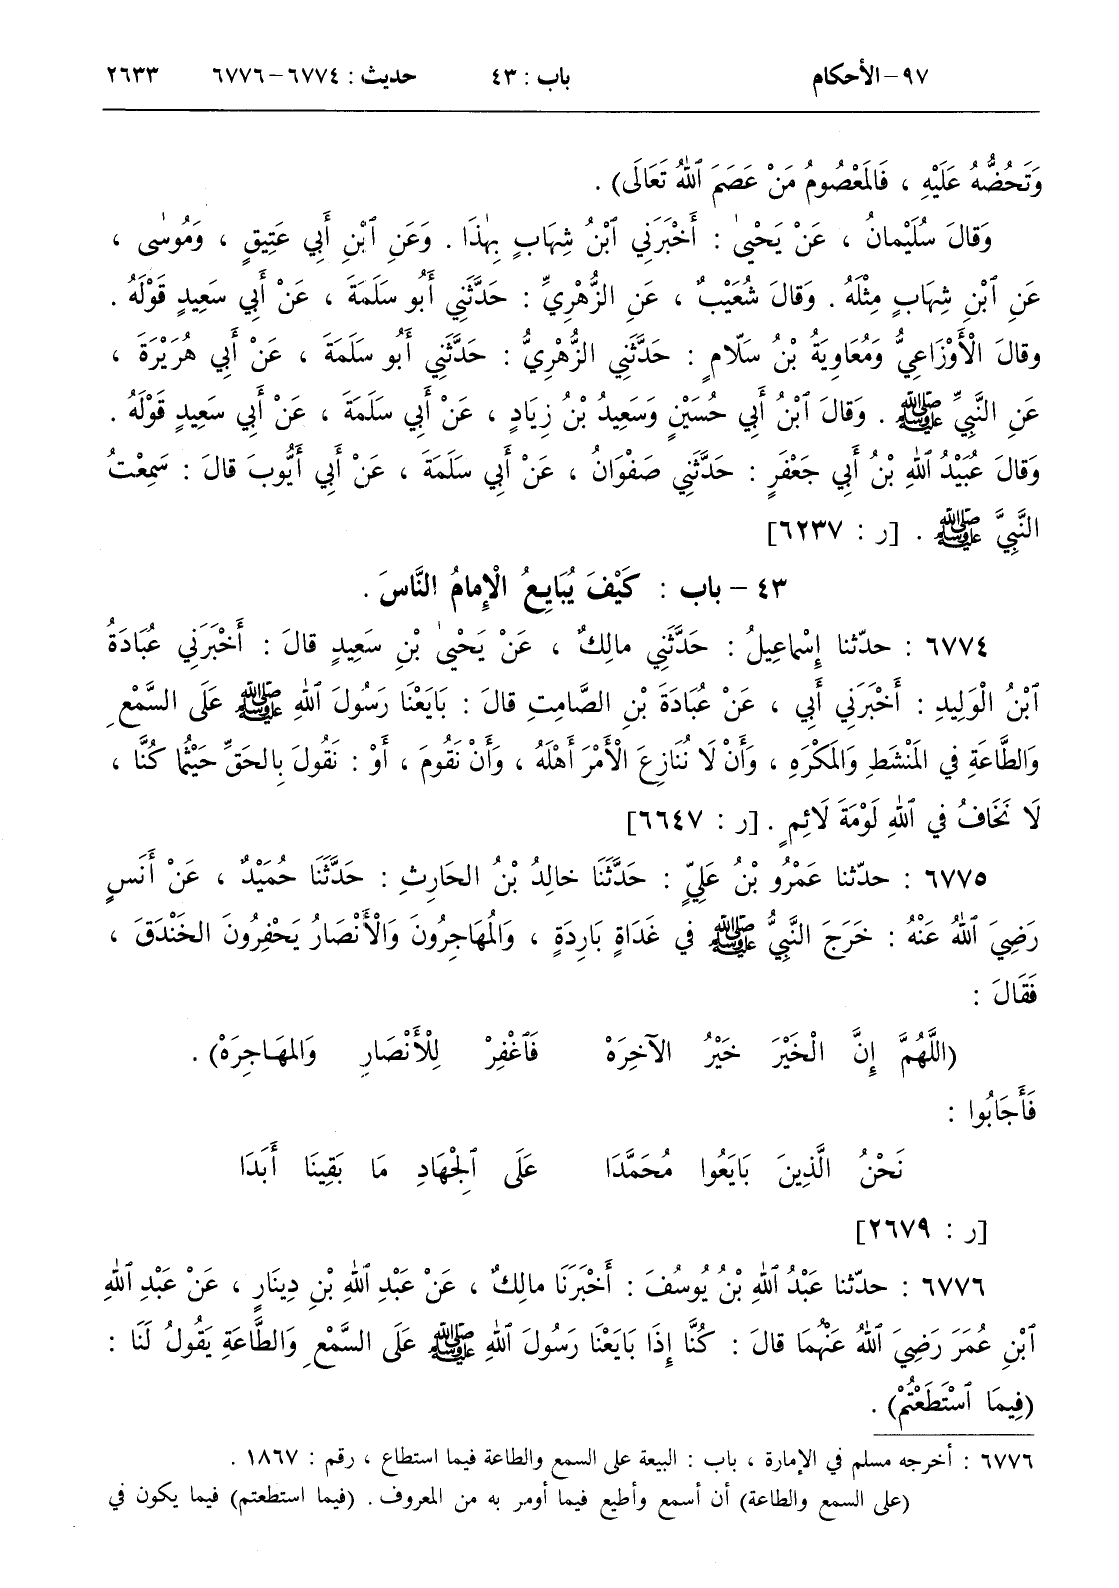 ٩٧ – الأحكام باب : ٤٣ حديث : ٦٧٧٤–٦٧٧٦ ٢٦٣٣
وَتَحُضُّهُ عَلَيْهِ ، فَالمَعْصُومُ مَنْ عَصَمَ ٱللهُ تَعَالَى) .
وَقالَ سُلَيْمانُ ، عَنْ يَحْيىٰ : أَخْبَرَنِي ٱبْنُ شِهَابٍ بِهٰذَا . وَعَنِ ٱبْنِ أَبِي عَتِيقٍ ، وَمُوسٰى ،
عَنِ ٱبْنِ شِهَابٍ مِثْلَهُ . وَقالَ شُعَيْبٌ ، عَنِ الزُّهْرِيِّ : حَدَّثَنِي أَبُو سَلَمَةَ ، عَنْ أَبِي سَعِيدٍ قَوْلَهُ .
وقالَ الْأَوْزَاعِيُّ وَمُعَاوِيَةُ بْنُ سَلَّامٍ : حَدَّثَنِي الزُّهْرِيُّ : حَدَّثَنِي أَبُو سَلَمَةَ ، عَنْ أَبِي هُرَيْرَةَ ،
عَنِ النَّبِيِّ ﷺ . وَقالَ ٱبْنُ أَبِي حُسَيْنٍ وَسَعِيدُ بْنُ زِيَادٍ ، عَنْ أَبِي سَلَمَةَ ، عَنْ أَبِي سَعِيدٍ قَوْلَهُ .
وَقالَ عُبَيْدُ ٱللهِ بْنُ أَبِي جَعْفَرٍ : حَدَّثَنِي صَفْوَانُ ، عَنْ أَبِي سَلَمَةَ ، عَنْ أَبِي أَيُّوبَ قالَ : سَمِعْتُ
النَّبِيَّ ﷺ . [ر : ٦٢٣٧]
٤٣ – باب : كَيْفَ يُبَايِعُ الْإِمامُ النَّاسَ .
٦٧٧٤ : حدّثنا إِسْماعِيلُ : حَدَّثَنِي مالِكٌ ، عَنْ يَحْيىٰ بْنِ سَعِيدٍ قالَ : أَخْبَرَنِي عُبَادَةُ
ٱبْنُ الْوَلِيدِ : أَخْبَرَنِي أَبِي ، عَنْ عُبَادَةَ بْنِ الصَّامِتِ قالَ : بَايَعْنَا رَسُولَ ٱللهِ ﷺ عَلَى السَّمْعِ
وَالطَّاعَةِ فِي المَنْشَطِ وَالمَكْرَهِ ، وَأَنْ لَا نُنَازِعَ الْأَمْرَ أَهْلَهُ ، وَأَنْ نَقُومَ ، أَوْ : نَقُولَ بِالحَقِّ حَيْثُما كُنَّا ،
لَا نَخَافُ فِي ٱللهِ لَوْمَةَ لَائِمٍ . [ر : ٦٦٤٧]
٦٧٧٥ : حدّثنا عَمْرُو بْنُ عَلِيٍّ : حَدَّثَنَا خالِدُ بْنُ الحَارِثِ : حَدَّثَنَا حُمَيْدٌ ، عَنْ أَنَسٍ
رَضِيَ ٱللهُ عَنْهُ : خَرَجَ النَّبِيُّ ﷺ فِي غَدَاةٍ بَارِدَةٍ ، وَالمُهَاجِرُونَ وَالْأَنْصَارُ يَحْفِرُونَ الخَنْدَقَ ،
فَقَالَ :
(اللَّهُمَّ إِنَّ الْخَيْرَ خَيْرُ الآخِرَهْ فَٱغْفِرْ لِلْأَنْصَارِ وَالمهَاجِرَهْ) .
فَأَجَابُوا :
نَحْنُ الَّذِينَ بَايَعُوا مُحَمَّدَا عَلَى ٱلْجِهَادِ مَا بَقِينَا أَبَدَا
[ر : ٢٦٧٩]
٦٧٧٦ : حدّثنا عَبْدُ ٱللهِ بْنُ يُوسُفَ : أَخْبَرَنَا مالِكٌ ، عَنْ عَبْدِ ٱللهِ بْنِ دِينَارٍ ، عَنْ عَبْدِ ٱللهِ
ٱبْنِ عُمَرَ رَضِيَ ٱللهُ عَنْهُمَا قالَ : كُنَّا إِذَا بَايَعْنَا رَسُولَ ٱللهِ ﷺ عَلَى السَّمْعِ وَالطَّاعَةِ يَقُولُ لَنَا :
(فِيمَا ٱسْتَطَعْتُمْ) .
٦٧٧٦ : أخرجه مسلم في الإمارة ، باب : البيعة على السمع والطاعة فيما استطاع ، رقم : ١٨٦٧ .
(على السمع والطاعة) أن أسمع وأطيع فيما أومر به من المعروف . (فيما استطعتم) فيما يكون في